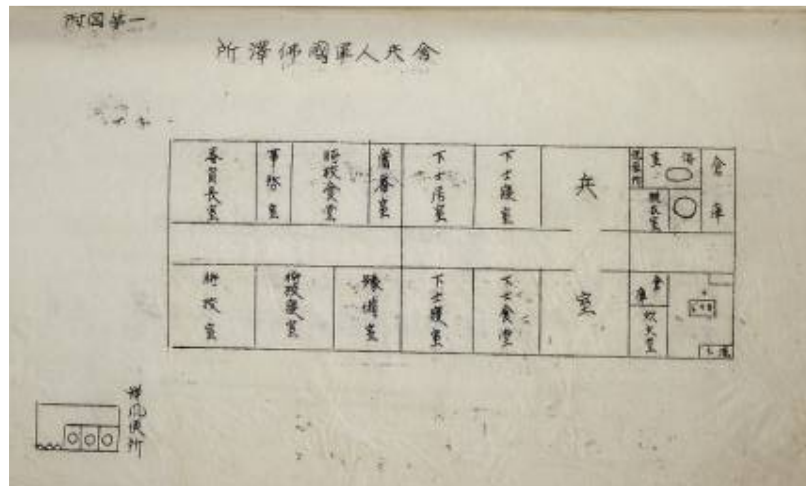 附図第一
所澤佛國軍人兵舎
委員長室
事務室
将校食堂
當番室
下士居室
下士寝室
兵
浴室
倉庫
将校室
将校寝室
豫備室
下士寝室
下士食堂
室
倉庫
炊夫室
様風便所